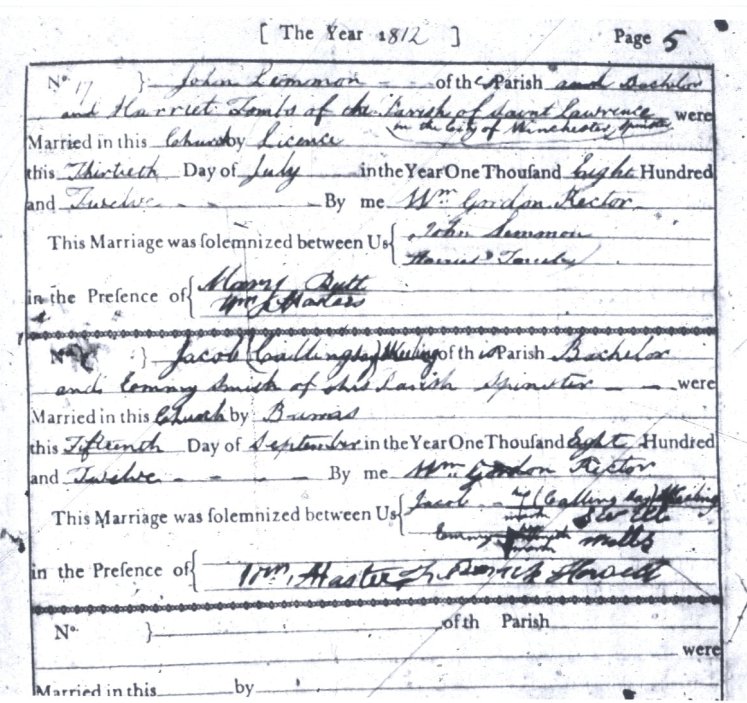 [ The Year 1812 ] Page 5
No. 17 } John Lemmon of this Parish and Bachelor
and Harriet Tombs of the Parish of Saint Lawrence were
in the City of Winchester Spinster
Married in this Church by Licence
this Thirtieth Day of July in the Year One Thousand Eight Hundred
and Twelve By me Wm. Gordon Rector
This Marriage was solemnized between Us { John Lemmon
Harriet
in the Presence of { Mary Butt
Wm Masters
No. } Jacob (Calling) of this Parish Bachelor
and Emmy Smith of this Parish Spinster were
Married in this Church by Banns
this Fifteenth Day of September in the Year One Thousand Eight Hundred
and Twelve By me Wm. Gordon Rector
This Marriage was solemnized between Us { Jacob (Calling
mark
Emmy
mark
in the Presence of { Wm. Masters
No. } of th Parish
were
Married in this by